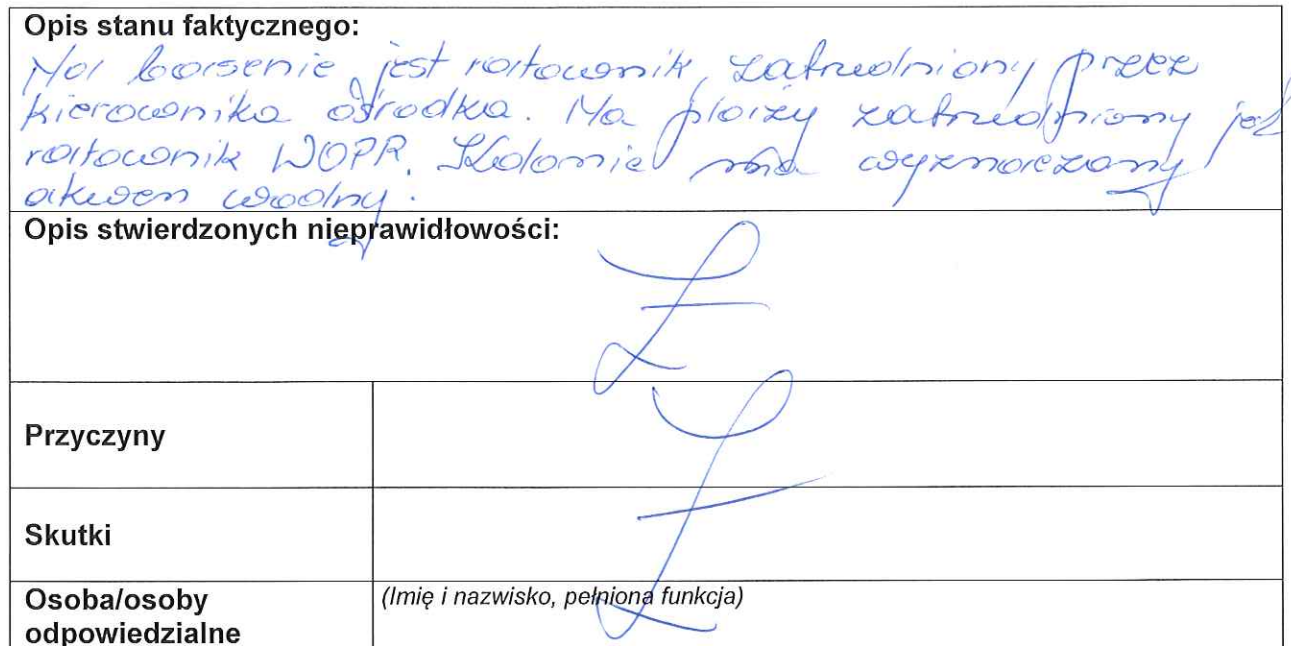 Opis stanu faktycznego:
Na basenie jest ratownik, zatrudniony przez
kierownika ośrodka. Na plaży zatrudniony jest
ratownik WOPR. Kolonie ma wyznaczony
akwen wodny.
Opis stwierdzonych nieprawidłowości:
Przyczyny
Skutki
Osoba/osoby
odpowiedzialne
(Imię i nazwisko, pełniona funkcja)